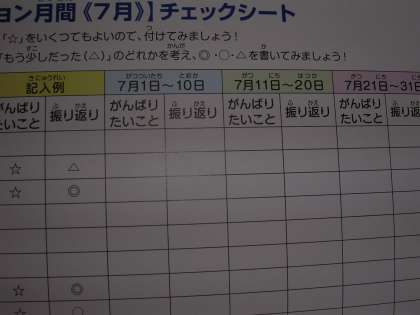 ョン月間《7月》】チェックシート
「☆」をいくつでもよいので、付けてみましょう!
「もう少しだった(△)」のどれかを考え、◎・○・△を書いてみましょう!
記入例 7月1日～10日 7月11日～20日 7月21日～31日
がんばりたいこと 振り返り がんばりたいこと 振り返り がんばりたいこと 振り返り がんばりたいこと 振り返り
☆ △
☆ ◎
☆ ◎
☆ ○